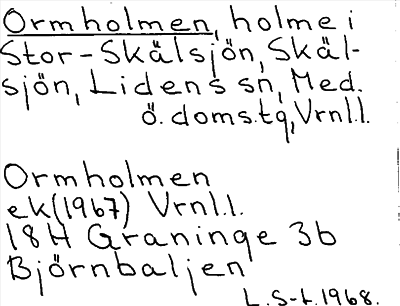 Ormholmen, holme i
Stor-Skälsjön, Skäl-
sjön, Lidens sn, Med.
ö. doms.tg, Vrnl.l.
Ormholmen
ek(1967) Vrnl.l.
18H Graninge 3b
Björnbaljen
L.S-t.1968.